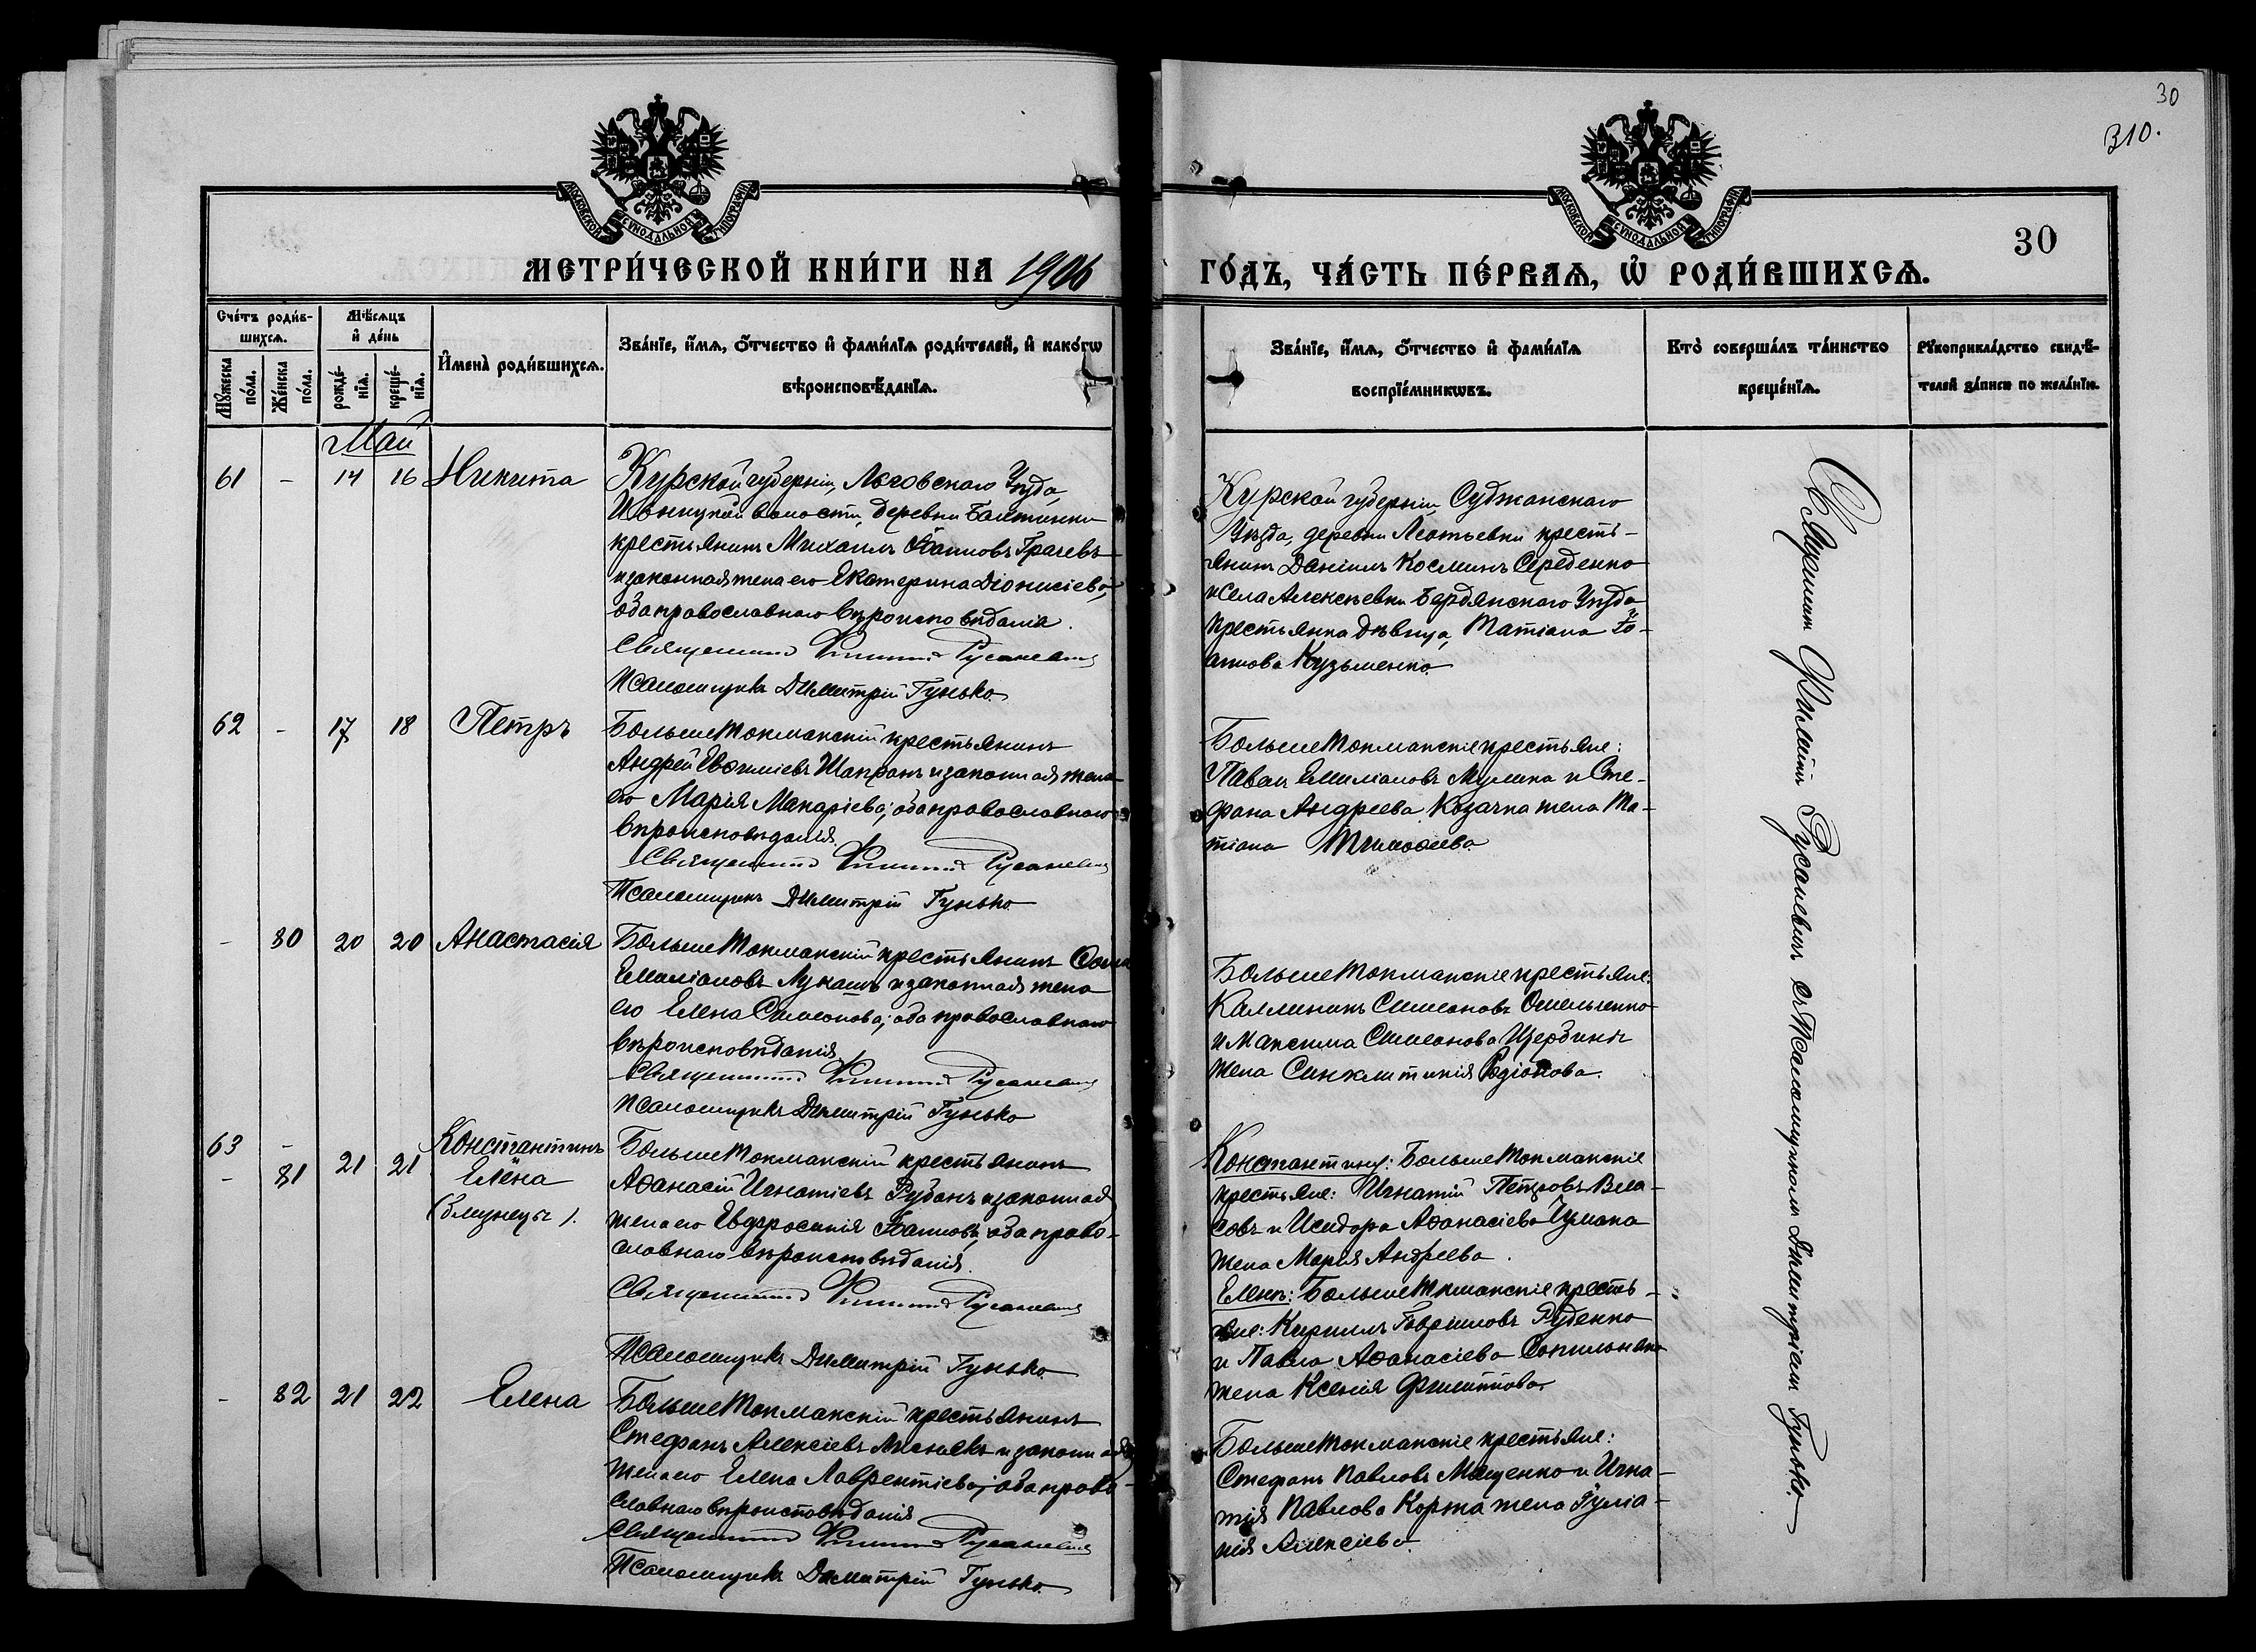 30
310.
МОСКОВСКОЙ СѴНОДАЛЬНОЙ ТИПОГРАФІИ
МОСКОВСКОЙ СѴНОДАЛЬНОЙ ТИПОГРАФІИ
30
МЕТРИ́ЧЕСКОЙ КНИ́ГИ НА 1906
ГО́ДЪ, ЧА́СТЬ ПЕ́РВАѦ, Ѡ҆ РОДИ́ВШИХСѦ.
Сче́тъ роди́в-
шихсѧ.
Мѣ́сѧцъ
и҆ де́нь
Мꙋ́жеска
по́ла.
Же́нска
по́ла.
рожде́-
нїѧ.
креще́-
нїѧ.
И҆мена̀ роди́вшихсѧ.
Зва́нїе, и҆́мѧ, ѻ҆́тчество и҆ фами́лїѧ роди́телей, и҆ како́гѡ
вѣроисповѣ́данїѧ.
Зва́нїе, и҆́мѧ, ѻ҆́тчество и҆ фами́лїѧ
воспрїе́мникѡвъ.
Кто̀ соверша́лъ та́инство
креще́нїѧ.
Рꙋкоприкла́дство свидѣ́-
телей за́писи по жела́нїю.
Май
61 - 14 16 Никита
Курской губерніи, Льговскаго Уѣзда,
Ивницкой волости, деревни
крестьянинъ Михаилъ Іоанновъ Грачевъ
и законная жена его Екатерина Діонисіева,
оба православнаго вѣроисповѣданія.
Священникъ Филиппъ Русаневичъ
Псаломщикъ Димитрій Гунько
Курской губерніи Суджанскаго
Уѣзда, деревни Леонтьевки кресть-
янинъ Даніилъ Косминъ Середенко
и села Алексѣевки Бердянскаго Уѣзда
крестьянка дѣвица, Татіана Іо-
аннова Кузьменко.
62 - 17 18 Петръ
БольшеТокмакскій крестьянинъ
Андрей Евфиміевъ Шапранъ и законная жена
его Марія Макаріева; оба православнаго
вѣроисповѣданія.
Священникъ Филиппъ Русаневичъ
Псаломщикъ Димитрій Гунько
БольшеТокмакскіе крестьяне:
Павелъ Емиліановъ Мулика и Сте-
фана Андреева Козачка жена Та-
тіана Тимофеева
- 80 20 20 Анастасія
БольшеТокмакскій крестьянинъ Ѳома
Емиліановъ Лукашъ и законная жена
его Елена Симеонова; оба православнаго
вѣроисповѣданія
Священникъ Филиппъ Русаневичъ
Псаломщикъ Димитрій Гунько
БольшеТокмакскіе крестьяне:
Каллиникъ Симеоновъ Омельченко
и Максима Симеонова Щербины
жена Синклитикія Родіонова.
63 -
- 81 21 21
Константинъ
Елена
(близнецы).
БольшеТокмакскій крестьянинъ
Аѳанасій Игнатіевъ Рубанъ и законная
жена его Евфросинія Іоаннова; оба право-
славнаго вѣроисповѣданія.
Священникъ Филиппъ Русаневичъ
Псаломщикъ Димитрій Гунько
Константину: БольшеТокмакскіе
крестьяне: Игнатій Петровъ Вла-
совъ и Исидора Аѳанасіева Чумака
жена Марія Андреева.
Еленѣ: БольшеТокмакскіе кресть-
яне: Кириллъ Гавриловъ Руденко
и Павла Аѳанасіева Сопильника
жена Ксенія Филиппова
- 82 21 22 Елена
БольшеТокмакскій крестьянинъ
Стефанъ Алексіевъ Лиснякъ и законная
жена его Елена Лаврентіева; оба право-
славнаго вѣроисповѣданія
Священникъ Филиппъ Русаневичъ
Псаломщикъ Димитрій Гунько
БольшеТокмакскіе крестьяне:
Стефанъ Павловъ Мащенко и Игна-
тія Павлова Корта жена Іуліа-
нія Алексіева.
Священникъ Филиппъ Русаневичъ съ Псаломщикомъ Димитріемъ Гунько.